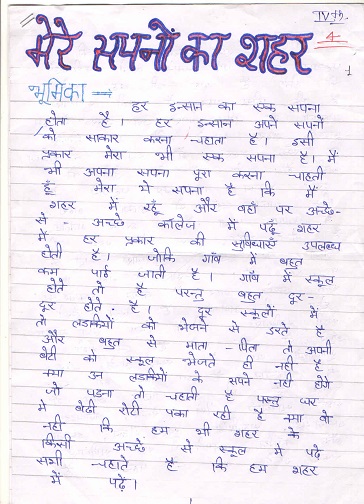 IVth
4
मेरे सपनों का शहर
1
भूमिका →
हर इन्सान का एक सपना
होता है। हर इन्सान अपने सपनों
को साकार करना चहाता है। इसी
प्रकार मेरा भी एक सपना है। मैं
भी अपना सपना पूरा करना चाहती
हूँ मेरा ये सपना है कि मैं
शहर में रहूँ और वहाँ पर अच्छे-
से - अच्छे कालेज में पढूँ शहर
में हर प्रकार की सुविधाएँ उपलब्ध
होती है। जोकि गाँव में बहुत
कम पाई जाती है। गाँव में स्कूल
होते तो है परन्तु बहुत दूर-
दूर होते है। दूर स्कूलों में
तो लडकियों को भेजने से डरते है
और बहुत से माता-पिता तो अपनी
बेटी को स्कूल भेजते ही नही है
क्या उन लडकियों के सपने नही होगे
जो पढना तो चहाती है परन्तु घर
मे बेठी रोटी पका रही है क्या वो
नही कि हम भी शहर के
किसी अच्छे से स्कूल मे पढे
सभी चहाते है कि हम शहर
में पढें।